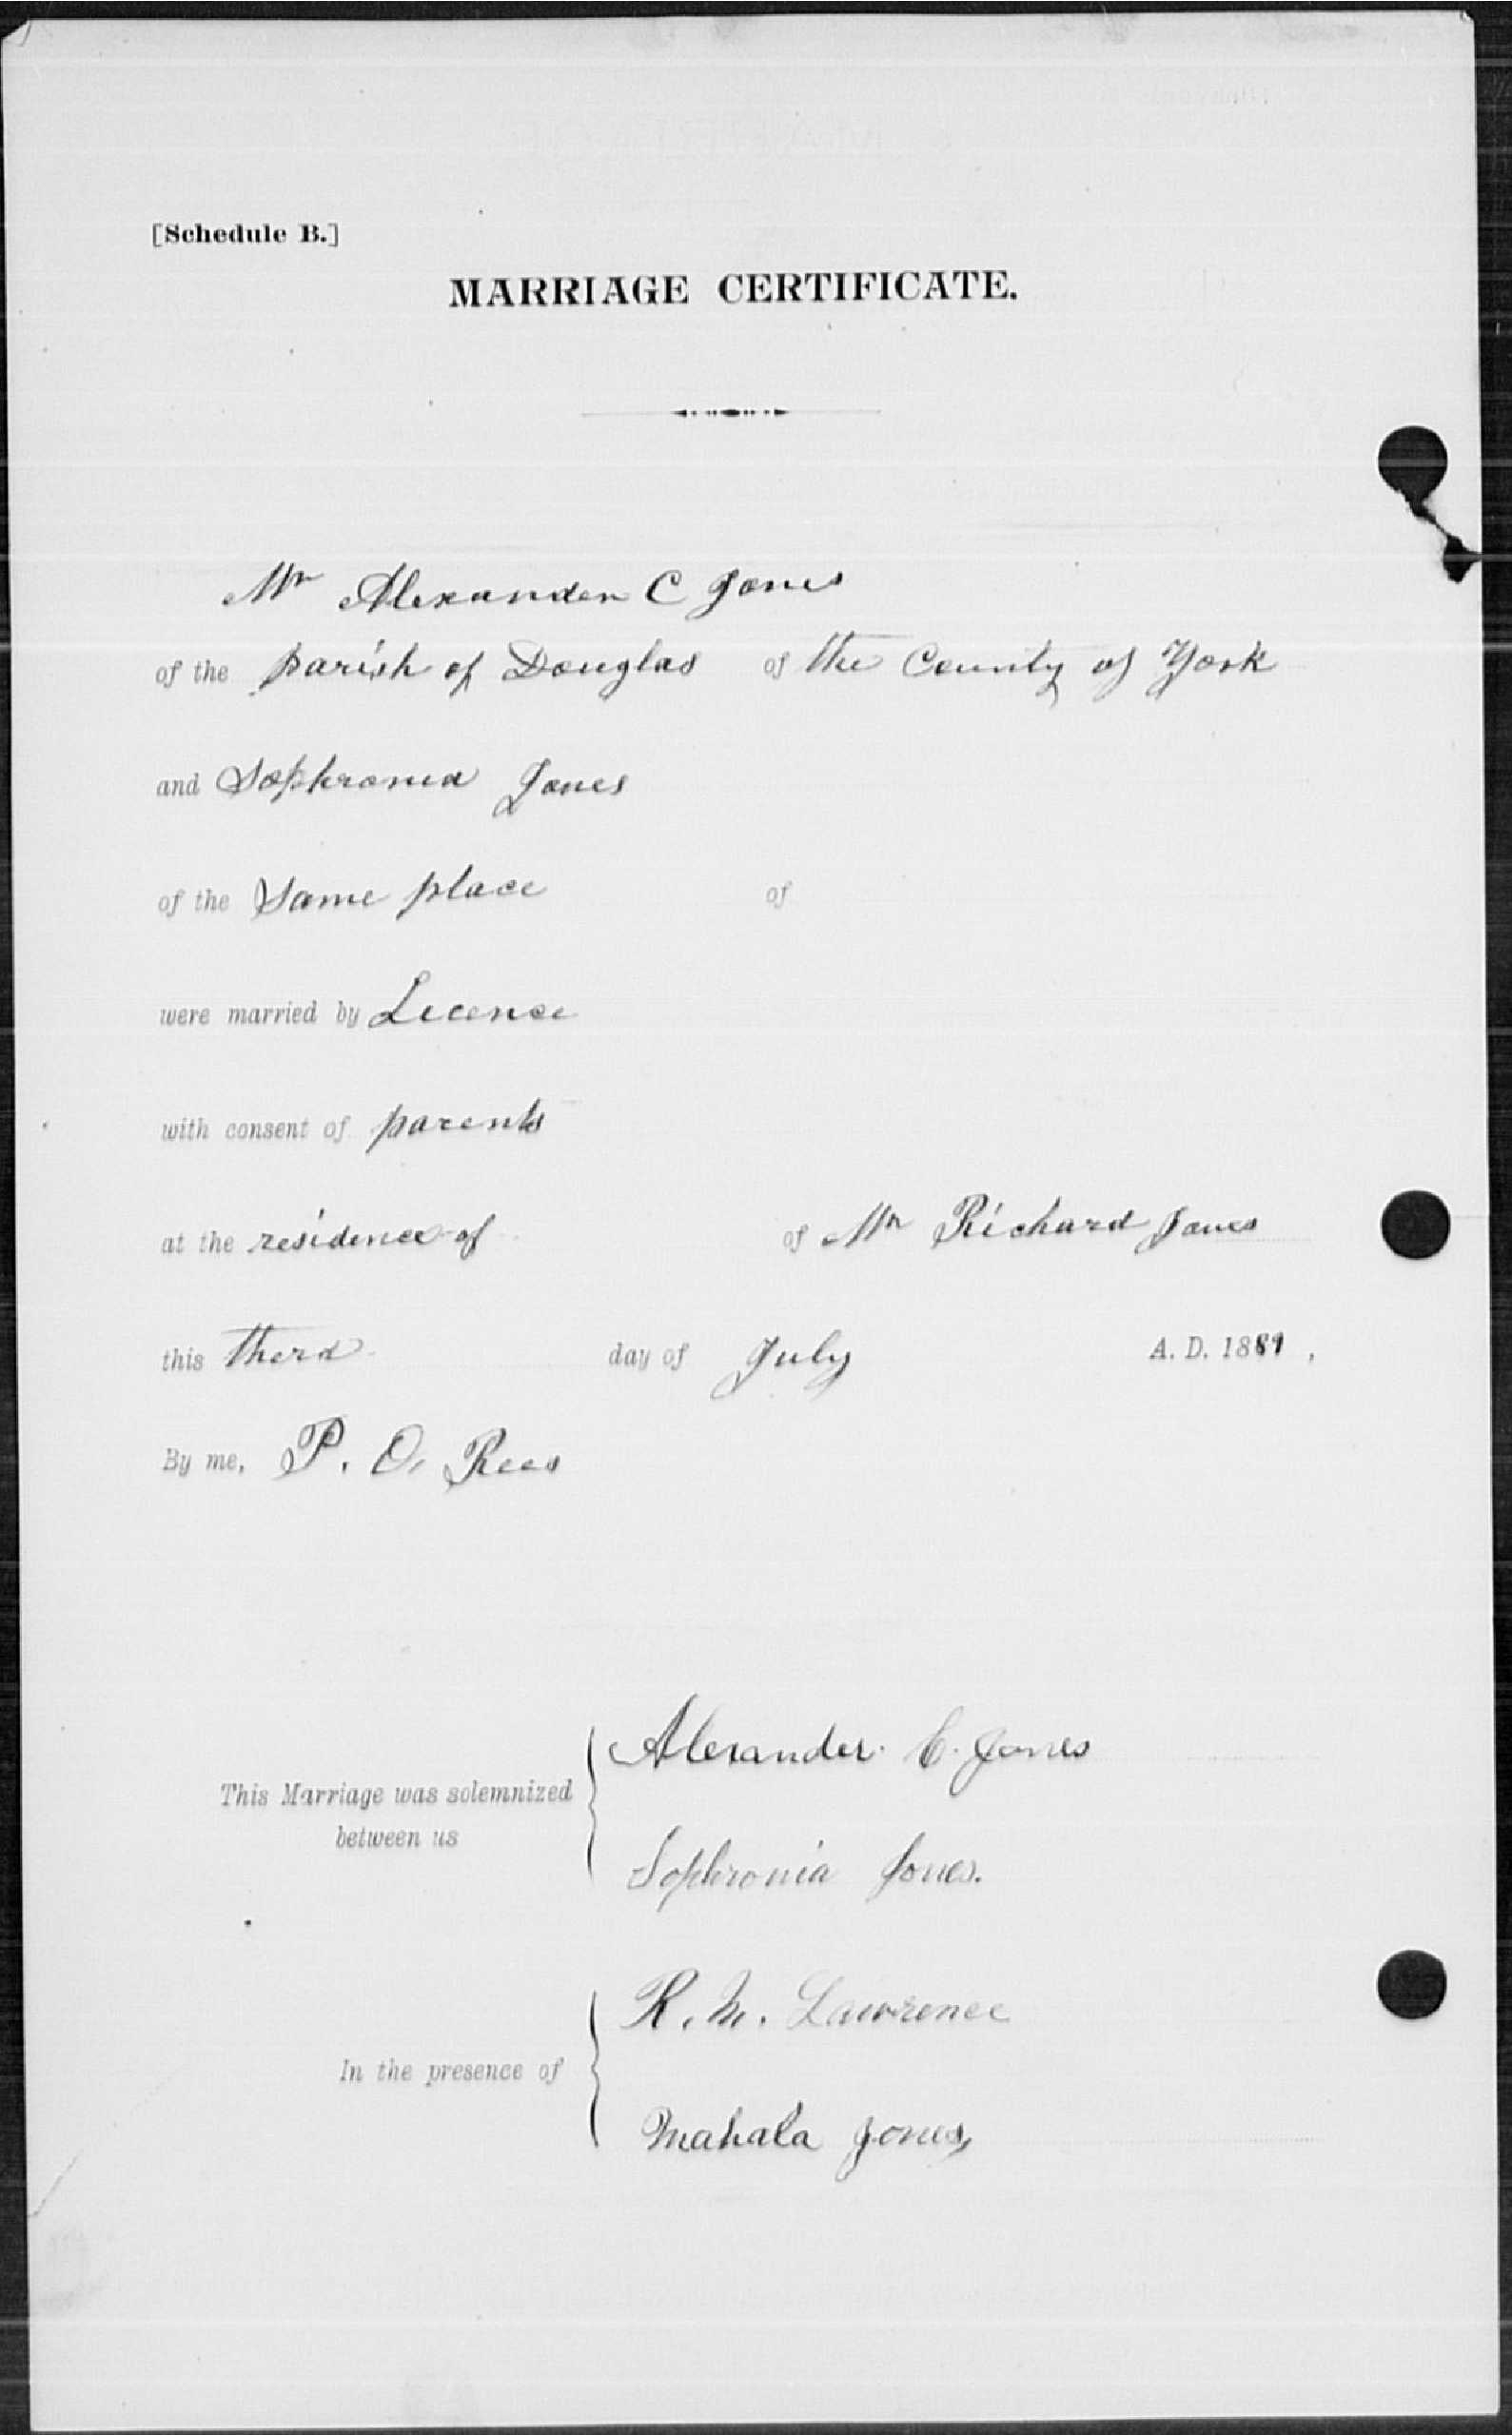 [Schedule B.]
MARRIAGE CERTIFICATE.
Mr Alexander C Jones
of the parish of Douglas of the County of York
and Sophronia Jones
of the Same place of
were married by Licence
with consent of parents
at the residence of of Mr Richard Jones
this therd day of July A. D. 1889 ,
By me, P. O. Rees
This Marriage was solemnized
between us
Alexander. C. Jones
Sophronia Jones.
In the presence of
R. M. Lawrence
Mahala Jones,